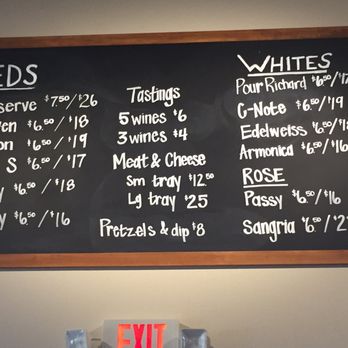 EDS
serve $7.50/$26
en $6.50/$18
on $6.50/$19
S $6.50/$17
y $6.50/$18
y $6.50/$16
Tastings
5 wines $6
3 wines $4
Meat & Cheese
Sm tray $12.50
Lg tray $25
Pretzels & dip $8
WHITES
Pour Richard $6.50/$17
C-Note $6.50/$19
Edelweiss $6.50/$18
Armonica $6.50/$16
ROSE
Passy $6.50/$16
Sangria $6.50/$2
EXIT